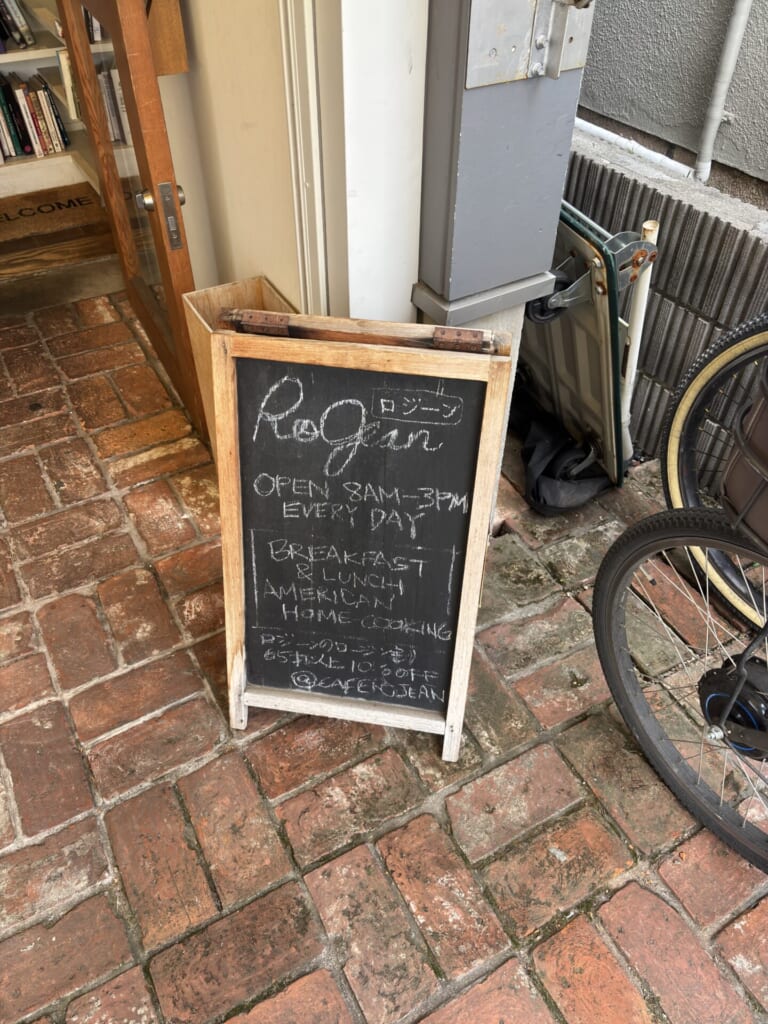 WELCOME
RoJean
ロジーン
OPEN 8AM-3PM
EVERY DAY
BREAKFAST
& LUNCH
AMERICAN
HOME COOKING
ロジーンのローシン割
65才以上 10%OFF
@CAFEROJEAN